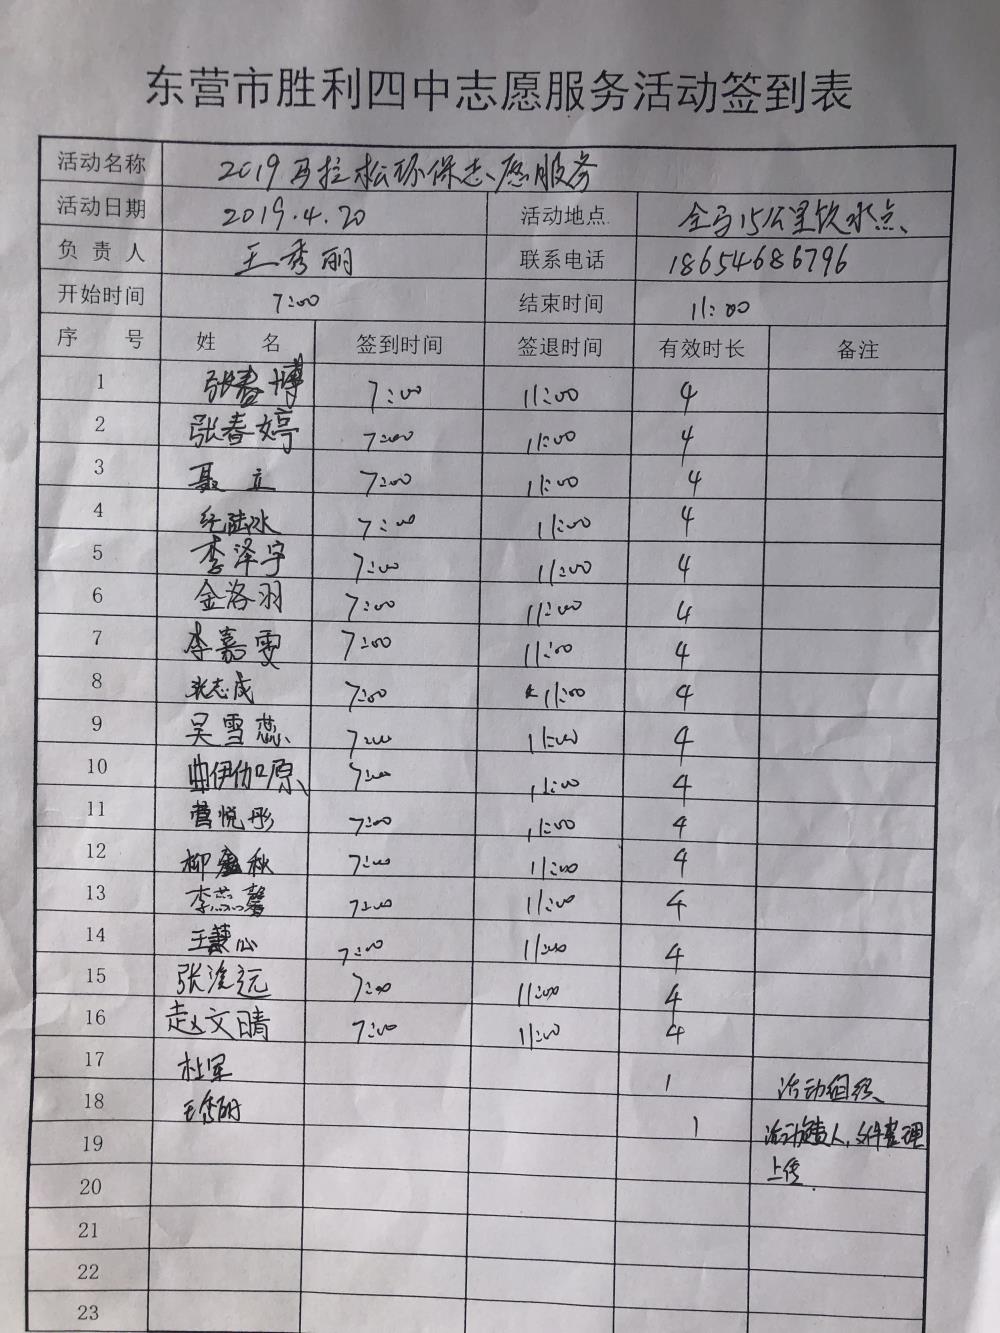 东营市胜利四中志愿服务活动签到表
活动名称 2019马拉松环保志愿服务
活动日期 2019.4.20 活动地点 全马15公里饮水点
负责人 王秀丽 联系电话 18654686796
开始时间 7:00 结束时间 11:00
序号 姓名 签到时间 签退时间 有效时长 备注
1 张春博 7:00 11:00 4
2 张春婷 7:00 11:00 4
3 聂立 7:00 11:00 4
4 纪陆冰 7:00 11:00 4
5 李泽宇 7:00 11:00 4
6 金洛羽 7:00 11:00 4
7 李嘉雯 7:00 11:00 4
8 张志成 7:00 11:00 4
9 吴雪蕊 7:00 11:00 4
10 曲伊伽原 7:00 11:00 4
11 营悦彤 7:00 11:00 4
12 柳鑫秋 7:00 11:00 4
13 李蕊馨 7:00 11:00 4
14 王心 7:00 11:00 4
15 张远 7:00 11:00 4
16 赵文晴 7:00 11:00 4
17 杜军 1 活动组织
18 王秀丽 1 活动负责人,文件整理
19 上传.
20
21
22
23